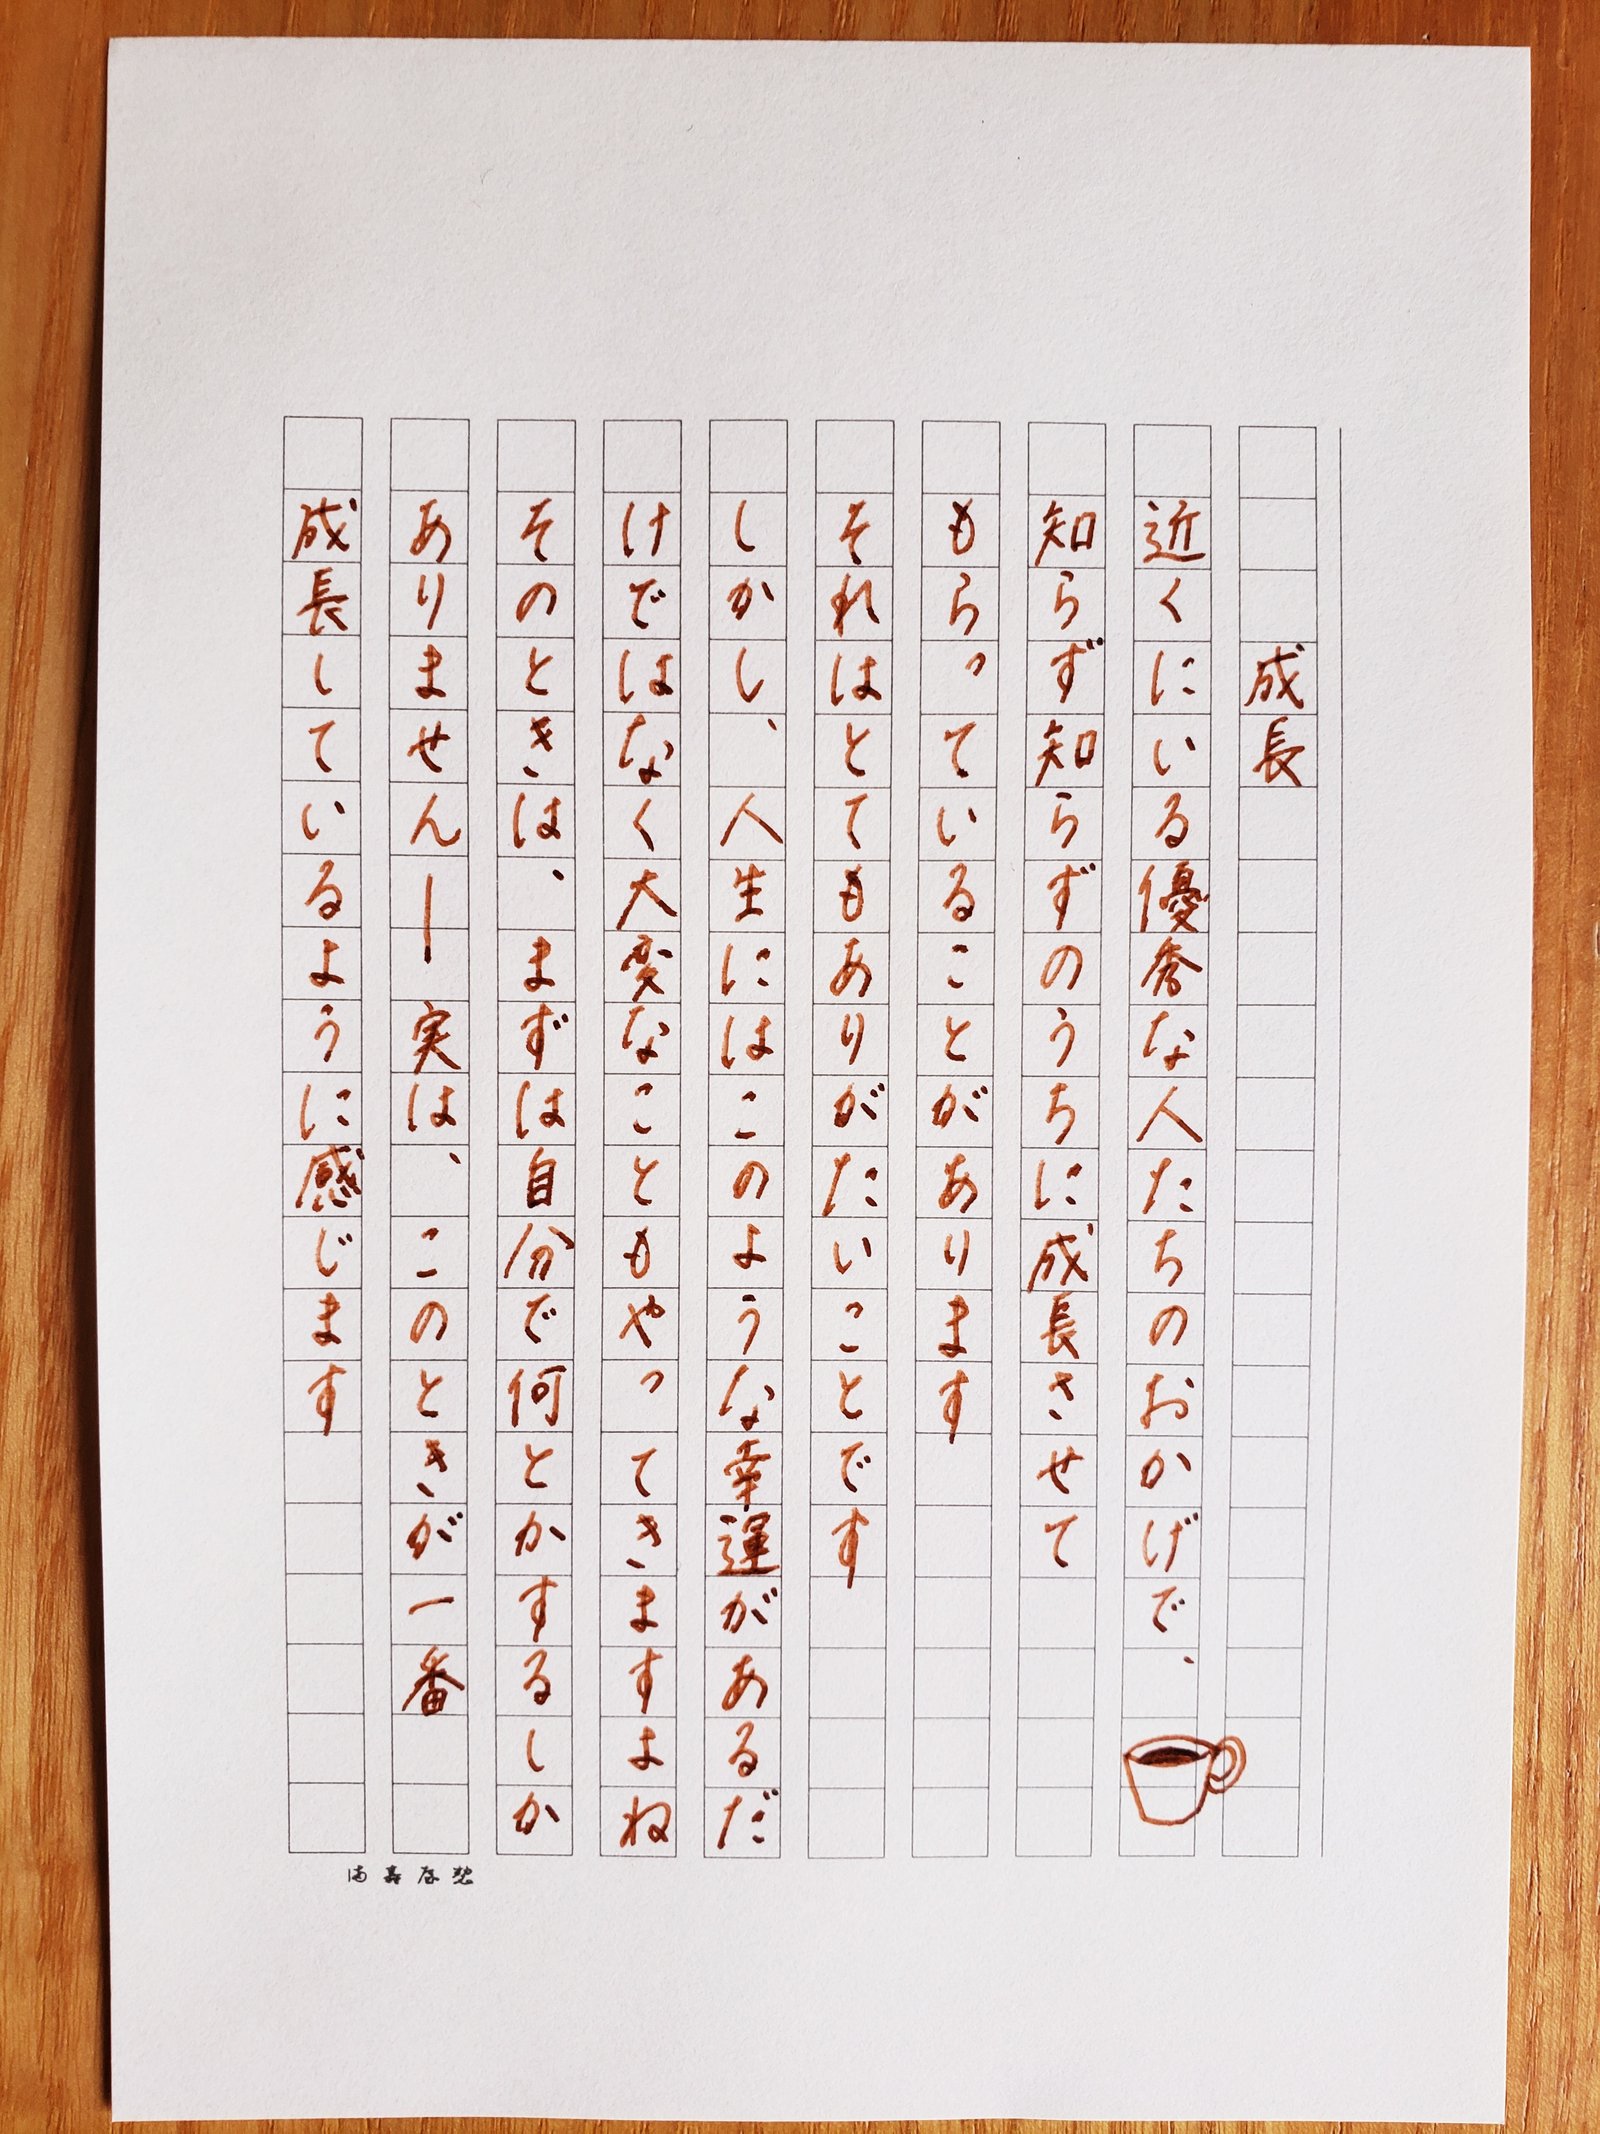 成長
近くにいる優秀な人たちのおかげで、
知らず知らずのうちに成長させて
もらっていることがあります
それはとてもありがたいことです
しかし、人生にはこのような幸運があるだ
けではなく大変なこともやってきますよね
そのときは、まずは自分で何とかするしか
ありません―実は、このときが一番
成長しているように感じます